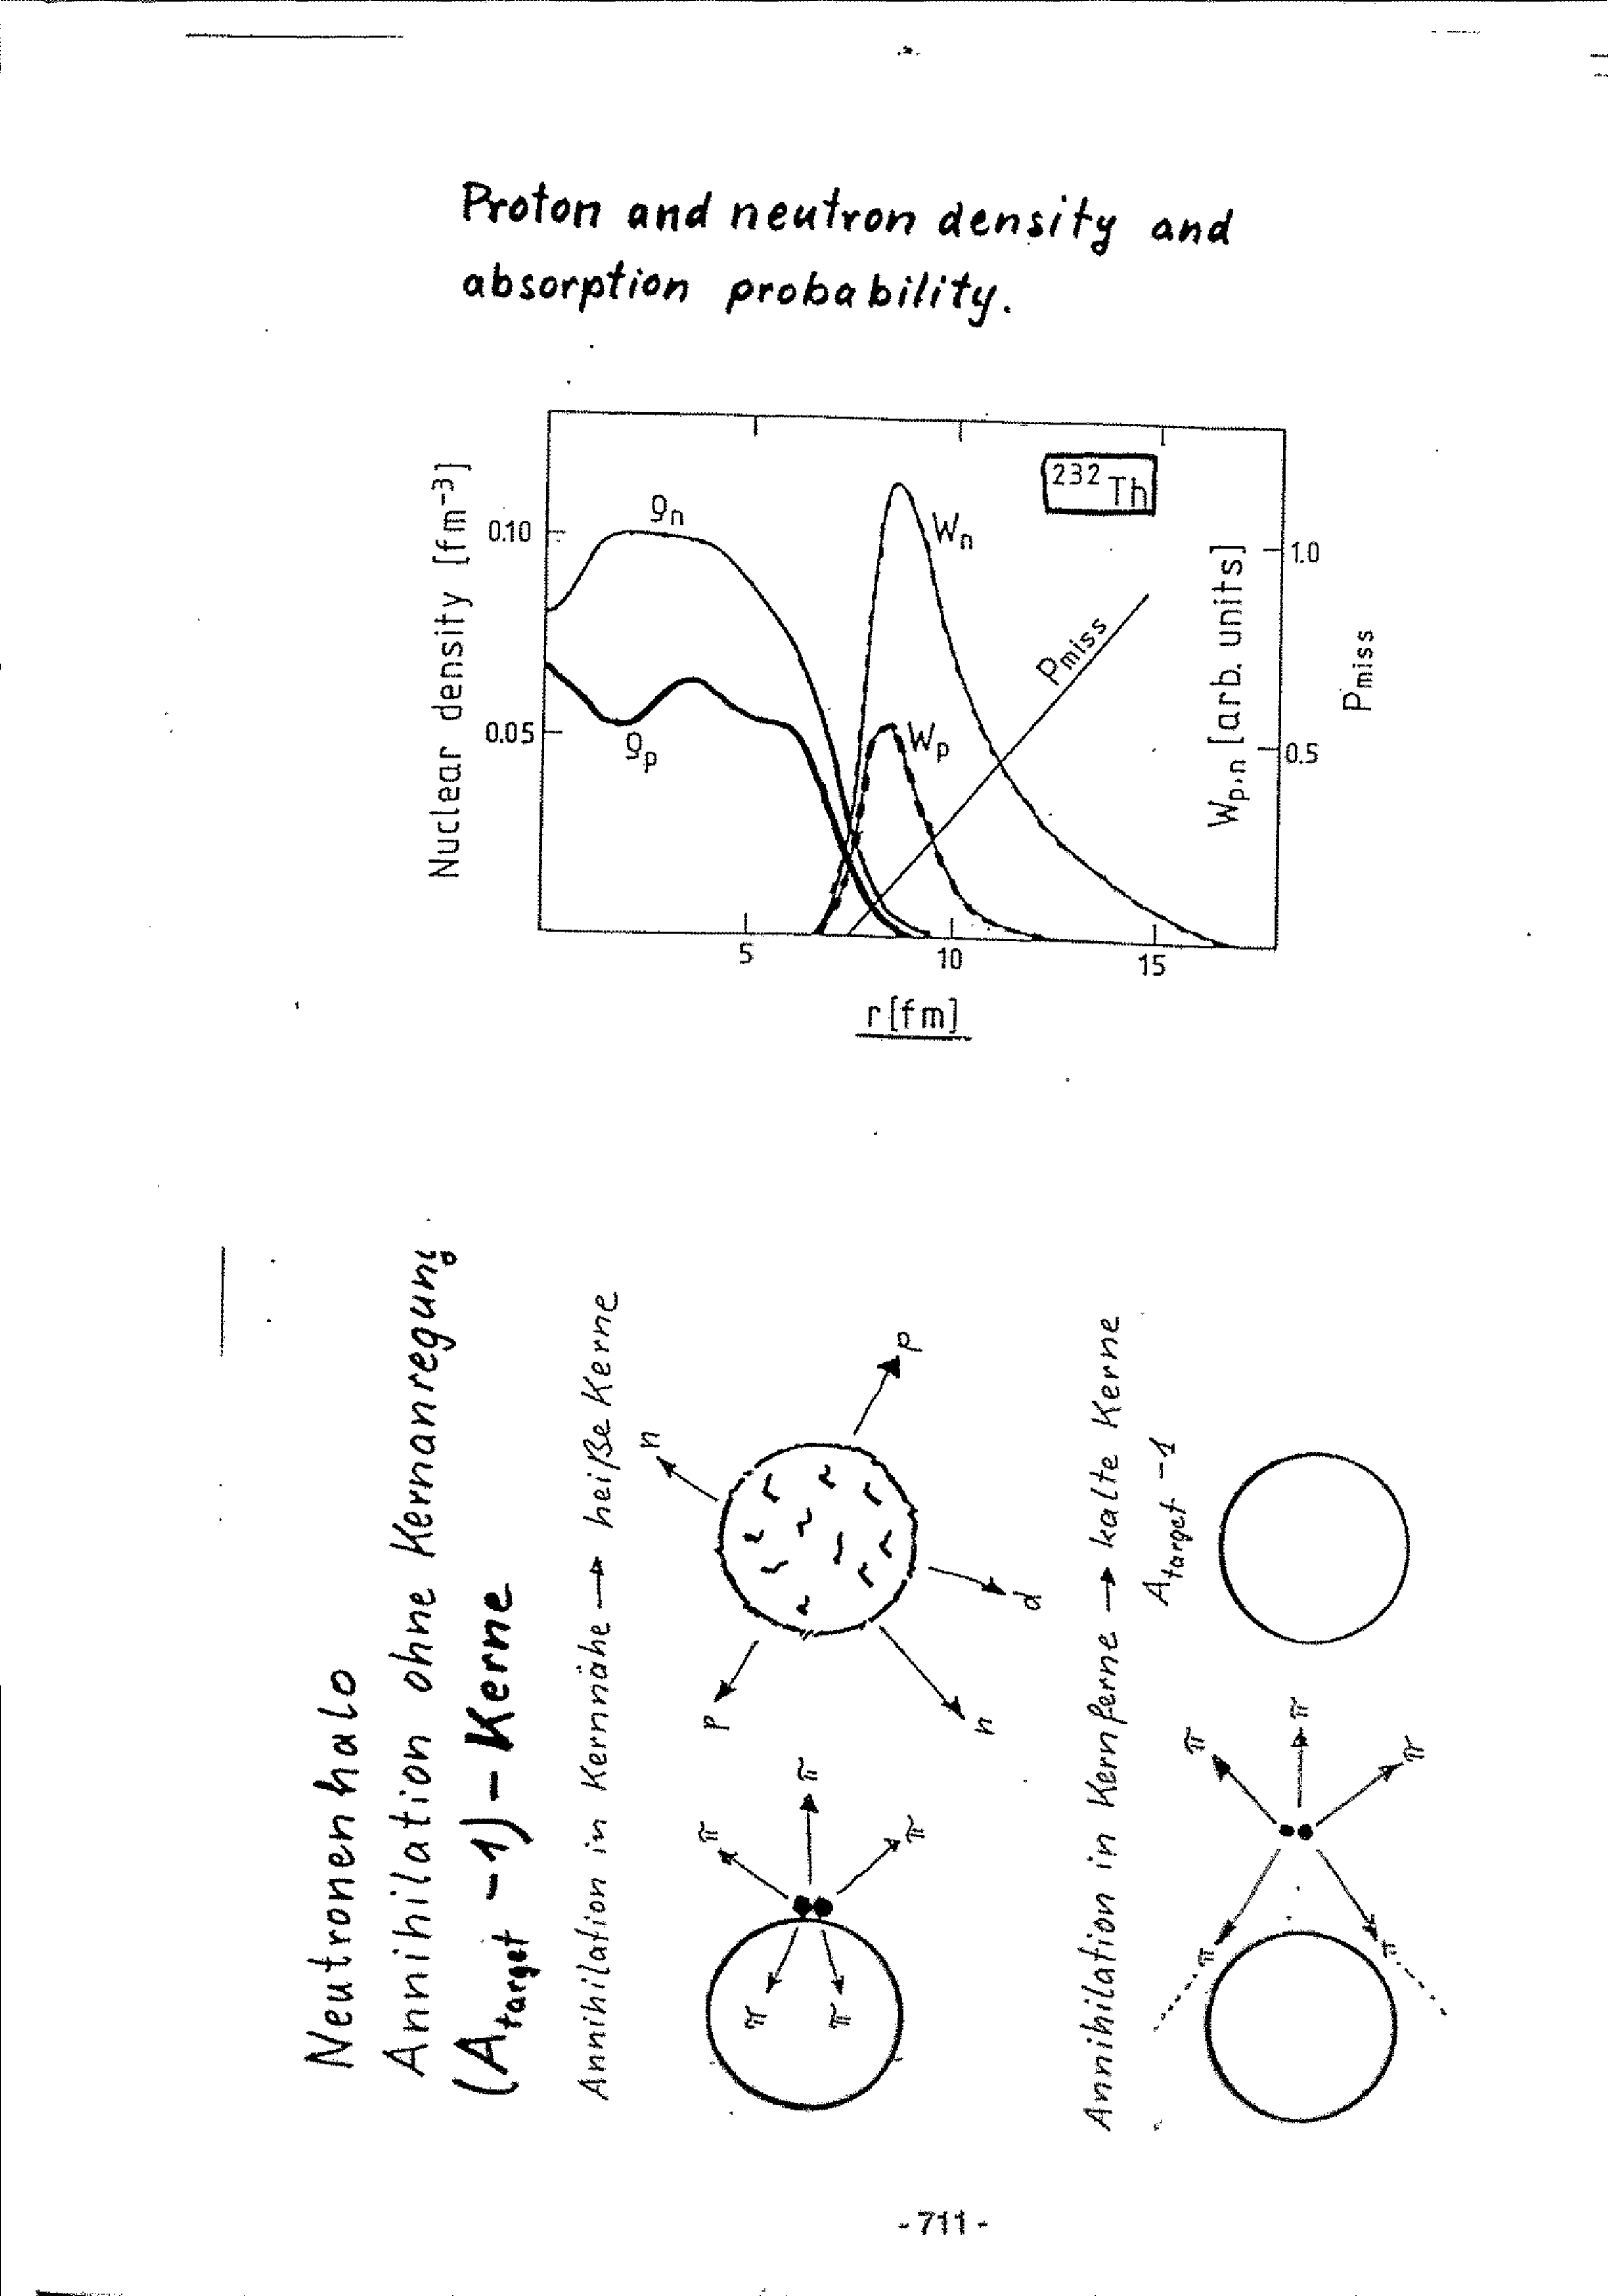 Proton and neutron density and
absorption probability.
Nuclear density [fm⁻³]
0.10
0.05
ρn
ρp
Wn
Wp
Pmiss
²³²Th
Wp,n [arb. units]
1.0
0.5
Pmiss
5
10
15
r[fm]
Neutronenhalo
Annihilation ohne Kernanregung
(Atarget -1) - Kerne
Annihilation in Kernnähe → heiße Kerne
π
π
π
π
π
p
n
n
d
p
Annihilation in Kernferne → kalte Kerne
Atarget -1
π
π
π
π
π
- 711 -